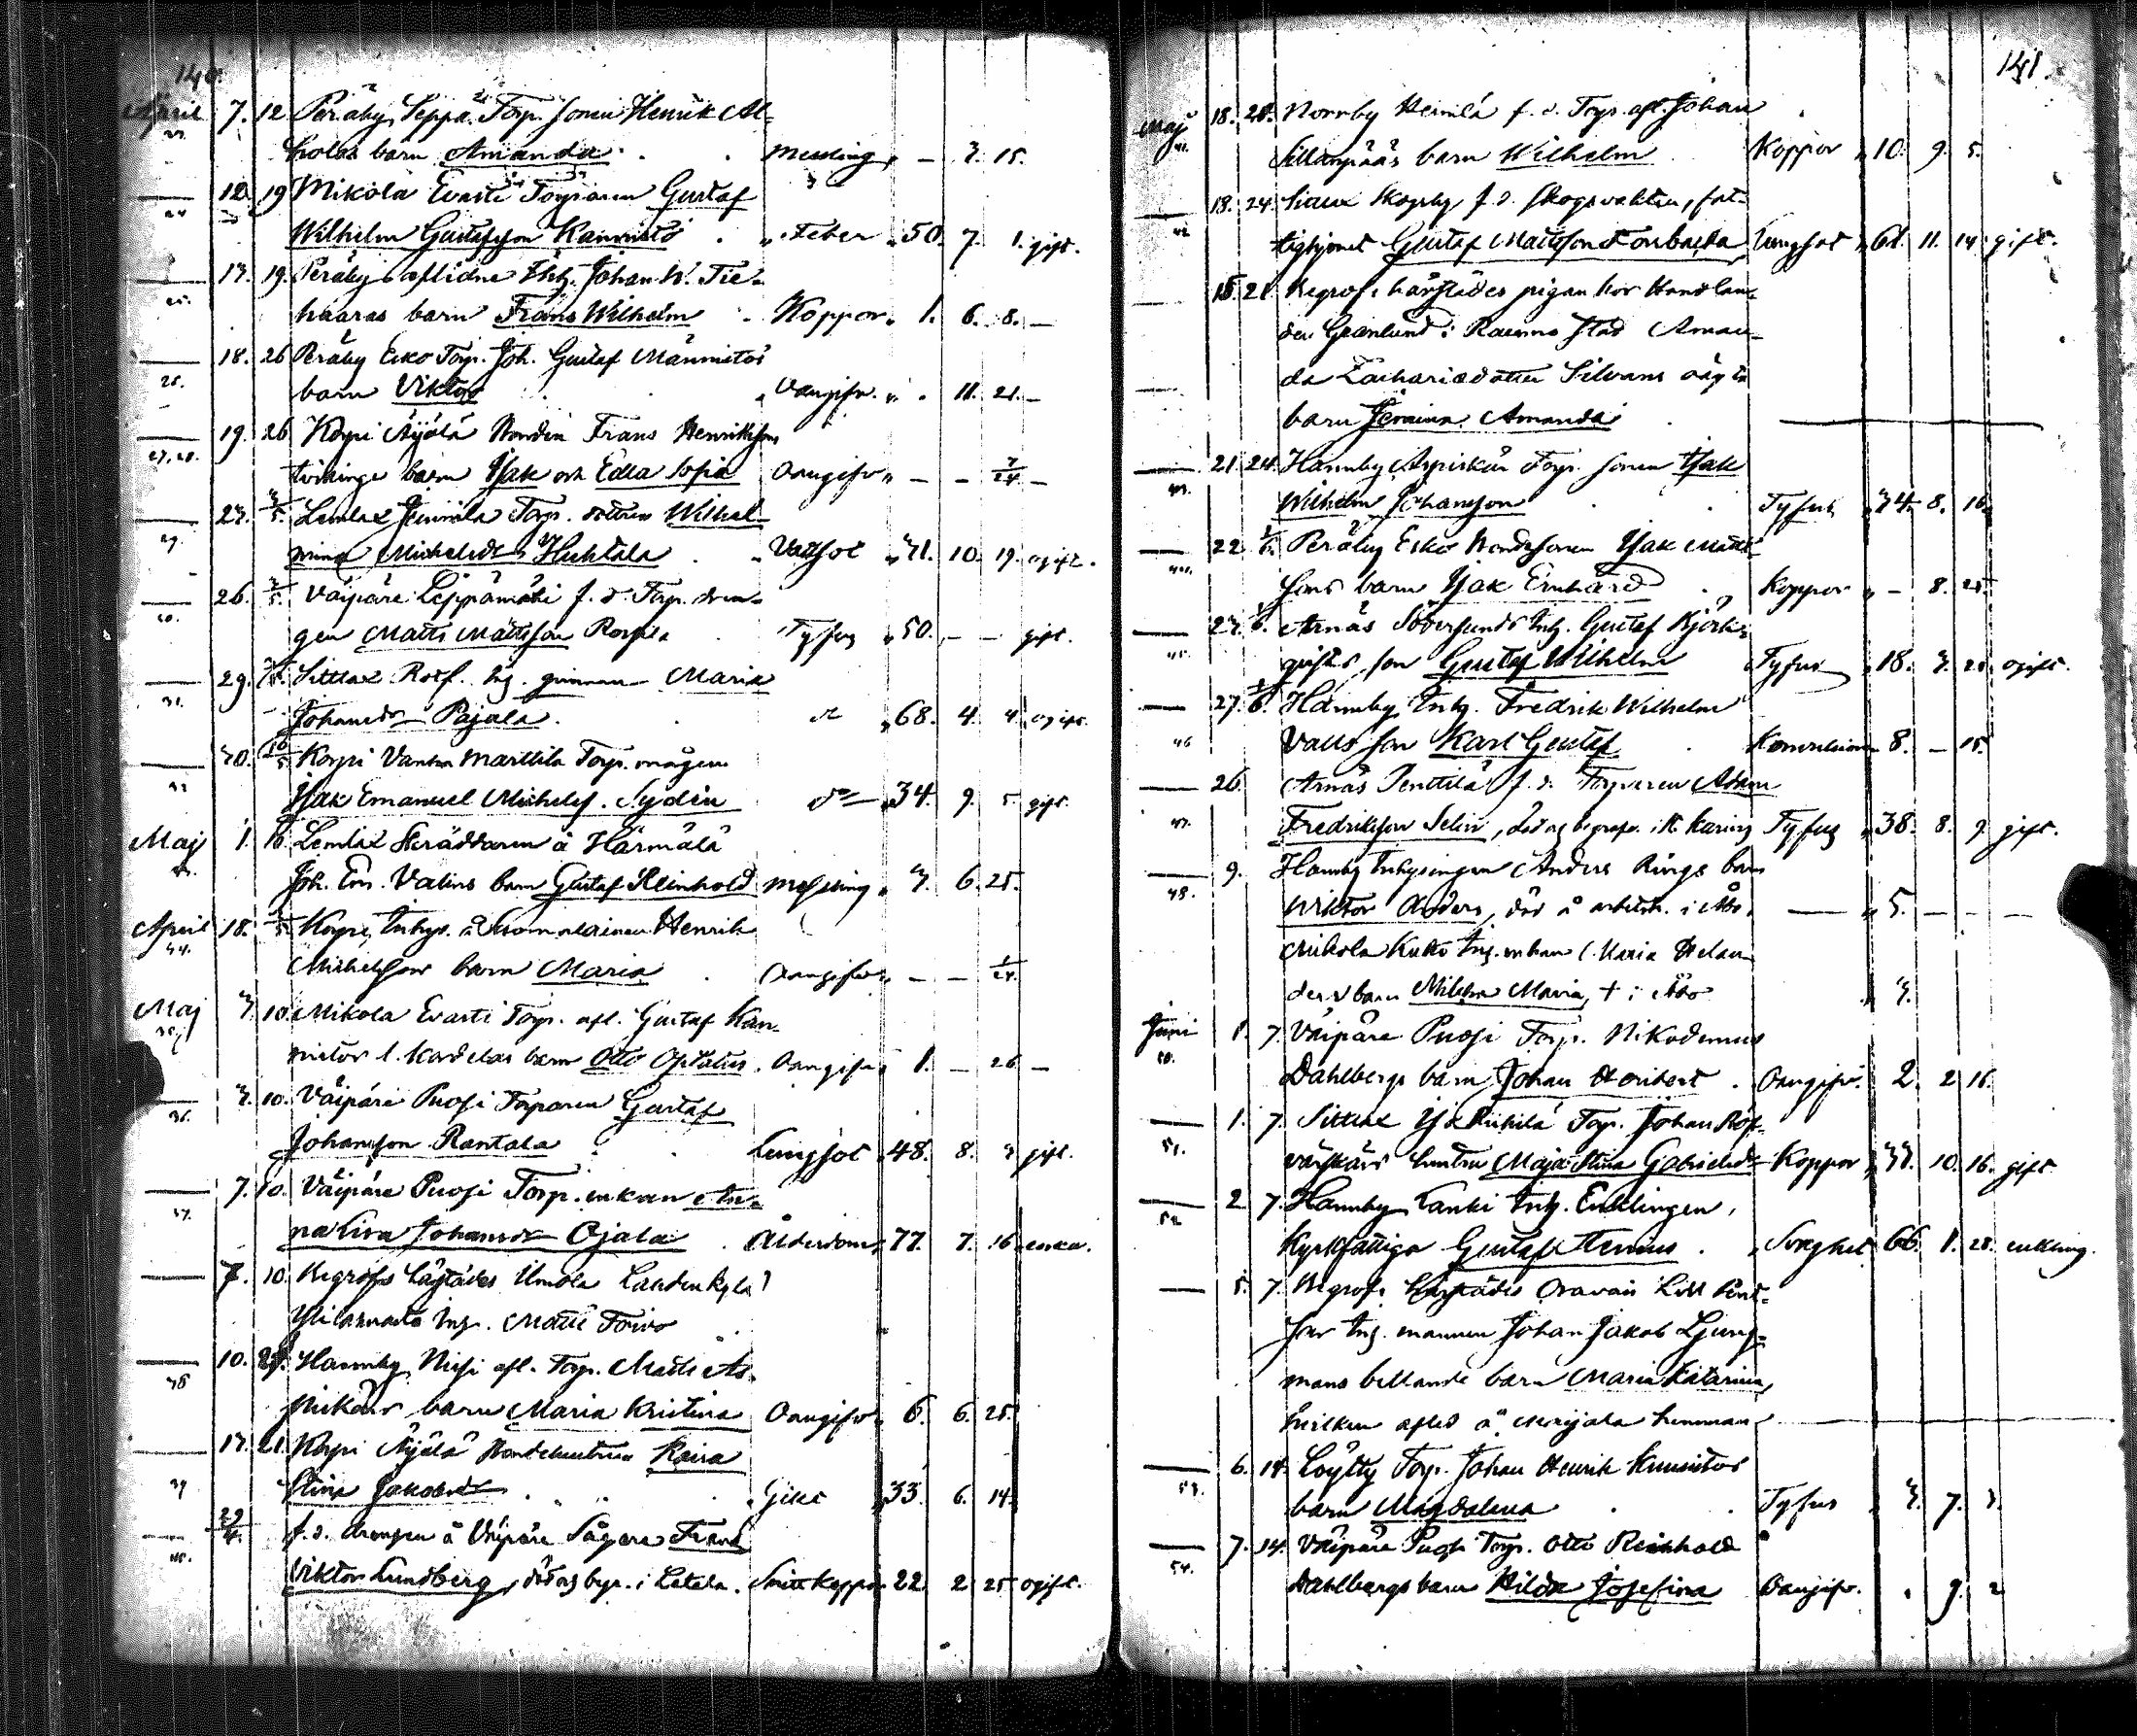 140.
April 7. 12 Peräby Seppä Torp. sonen Henrik Al-
holas barn Amanda Messling " — 3. 15.
12. 19 Mikola Evasti Torparen Gustaf
Wilhelm Gustafsson Kannisto " Feber " 50. 7. 1. gift.
17. 19. Peräby aflidne Inh. Johan W. Tie-
haaras barn Frans Wilhelm Koppor " 1. 6. 8. —
18. 26 Peräby Esko Torp. Joh. Gustaf Männistös
barn Viktor Oangifv. " . 11. 21. —
19. 26 Korpi Äijälä Bonden Frans Henrikssons
27, 28. tvillinge barn Isak och Edla Sofia Oangifv " — — 7/24 —
29. Lemlax Torp. dottren Wilhel-
mina Michelsdr Huhtala Vattsot " 71. 10. 19. ogift.
26. Vaipäre Leppämäki f. d. Torp. dren-
gen Matts Mattsson Tyfus " 50. — — gift.
29. Sittlax Rotf. hj. qvinnan Maria
Johansdr Pajala. " 68. 4. 4. ogift.
30. Korpi Vanha Marttila Torp. mågen
Isak Emanuel Michelss. Sydén " 34. 9. 5. gift.
Maj 1. Lemlax Skräddaren å Härmälä
Joh. Em. Valins barn Gustaf Reinhold Messling " 3. 6. 25.
April 18. Korpi, Inhys. å Suomalainen Henrik
34. Michelssons barn Maria Oangifv " — — 1/24.
Maj 3. 10. Mikola Evasti Torp. afl. Gustaf Kan-
nistos l. Kordelas barn Otto Optatus. Oangifv " 1. — 26 —
3. 10. Vaipäre Puosi Torparen Gustaf
36. Johansson Rantala Lungsot " 48. 8. 3 gift.
7. 10. Vaipäre Puosi Torp. enkan An-
37. na Lisa Johansdr Ojala Ålderdom " 77. 7. 16 enka.
7. 10. Begrofs härstädes Landenkylä
Inh. Matts Toivo
10. Hannby Nisi afl. Torp. Matts As-
38 barn Maria Kristina Oangifv " 6. 6. 25.
17. 21. Korpi Äijälä Bondehustrun Kaisa
39 Stina Jakobsdr Gikt " 33. 6. 14.
f. d. drengen å Vaipäre Sågare Frans
40. Viktor Lundberg, död o. begr. i Letala. Smittkoppor 22 2 25 ogift.
141.
Maj 18. 28. Normby Heinilä f. d. Torp. afl. Johan
41. Sillanpääs barn Wilhelm Koppor " 10. 9. 5.
18. 24. Koopby f. d. Skogsvakten, fat-
42. tighjonet Gustaf Mattsson Forsbacka Lungsot " 61. 11. 14 gift.
15. 21. Begrofs härstädes pigan hos Handlan-
den Granlund i Raumo stad Aman-
da Zachariædotter Silvans oägta
barn Amanda
21. 24. Hannby Torp. sonen Isak
43. Wilhelm Johansson Tyfus " 34. 8. 16.
22. Peräby Esko Bondesonen Isak Matts-
44. sons barn Isak Ernhard Koppor " — 8. 25.
23. Arnäs Södersunds Inh. Gustaf
45. son Gustaf Wilhelm Tyfus " 18. 3. 28 ogift.
27. Hannby Inh. Fredrik Wilhelm
46 Valls son Karl Gustaf Konvulsioner 8. — 15.
26. Arnäs Penttilä f. d. Torparen Adam
47. Fredriksson Selin, död o. begrafv. i St. Karins Tyfus " 38. 8. 9 gift.
9. Hannby Inhysingen Anders Rings barn
48. Viktor Anders, död å arbetsh. i Åbo. — " 5. — — —
Mikola Kutto Inh. enkan l. Maria Helan-
ders barn Milka Maria, † i Åbo " 3.
Juni 1. 7. Vaipäre Puosi Torp. Nikodemus
50. Dahlbergs barn Johan Heribert Oangifv. 2. 2 16.
1. 7. Sittlax Torp. Johan
51. hustru Maja Stina Gabrielsdr Koppor " 37. 10. 16. gift.
2 7. Hannby Lanki Inh. Enklingen,
52 Kyrkfattiga Gustaf Stenius " Svaghet 66. 1. 28. enkling.
5. 7. Begrofs härstädes Oravais
Inh. mannen Johan Jakob Ljung-
mans barn Maria Katarina,
hvilken afled å Marjala hemman
6. 14. Löytty Torp. Johan Henrik Kunnistos
53. barn Magdalena Tyfus " 3. 7. 3.
7. 14. Vaipäre Puosi Torp. Otto Reinhold
54. Dahlbergs barn Hilda Josefina Oangifv. " 9. 2